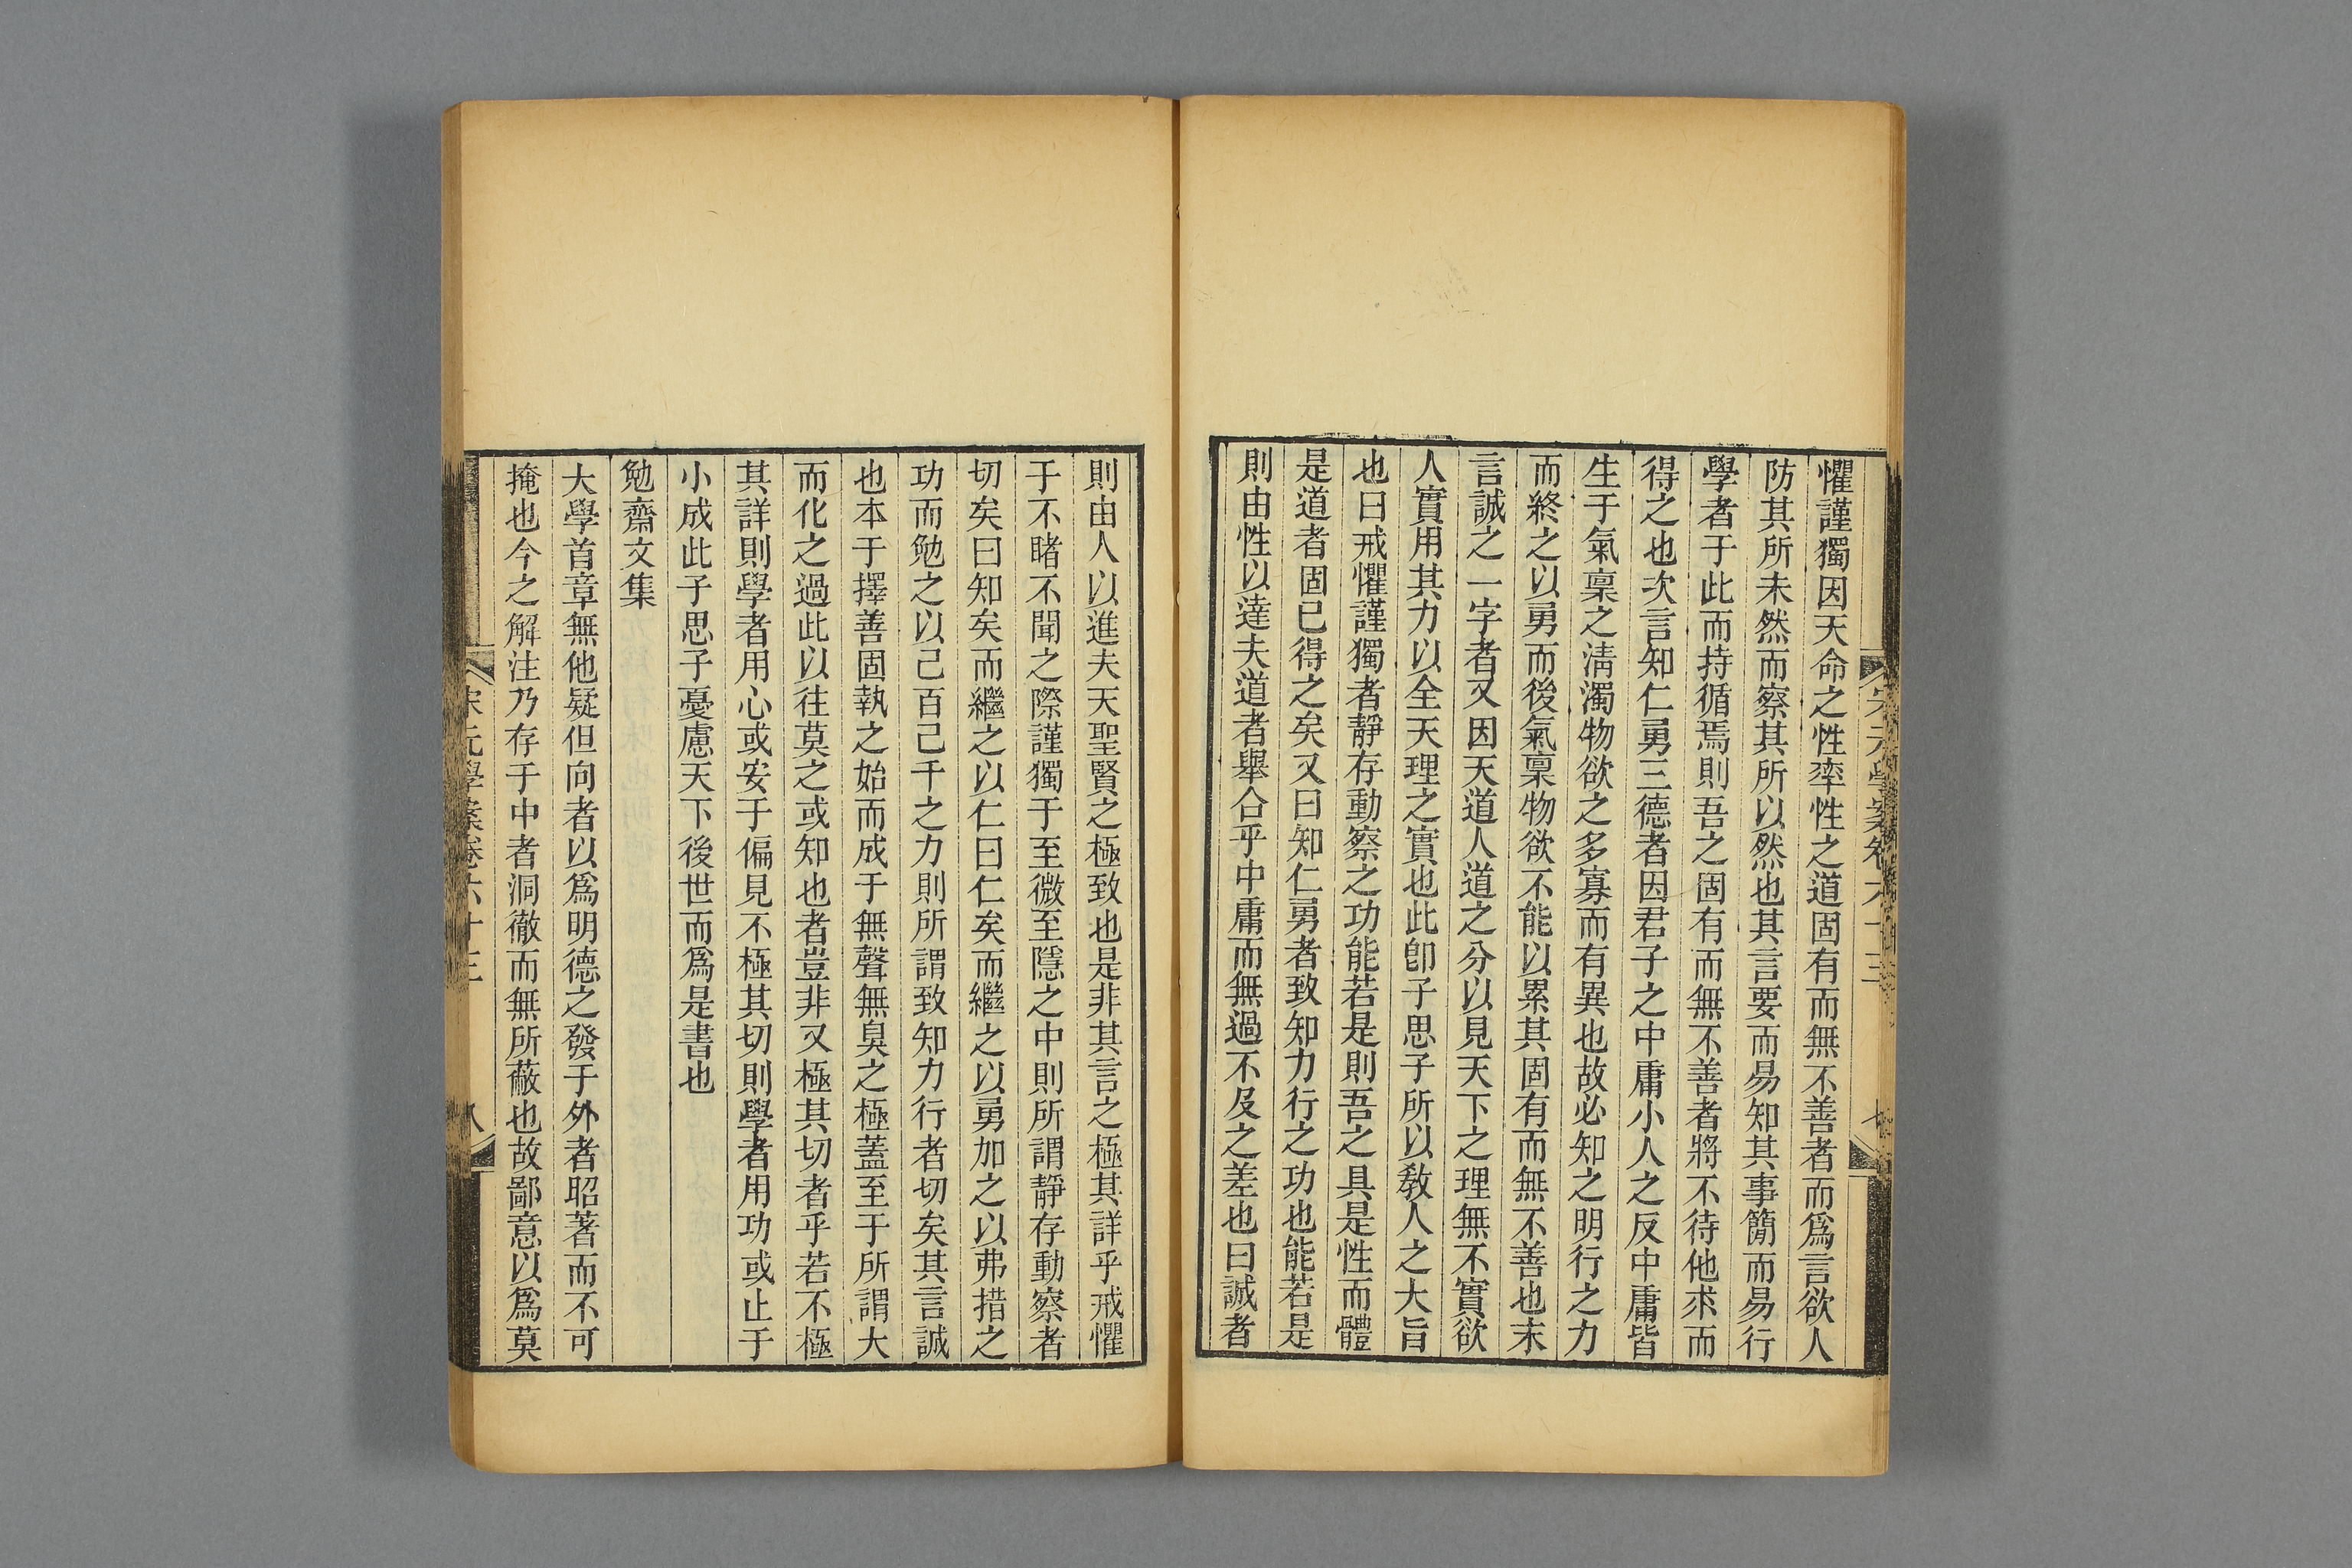 宋元學案卷六十三
七
懼謹獨因天命之性率性之道固有而無不善者而爲言欲人
防其所未然而察其所以然也其言要而易知其事簡而易行
學者于此而持循焉則吾之固有而無不善者將不待他求而
得之也次言知仁勇三德者因君子之中庸小人之反中庸皆
生于氣稟之淸濁物欲之多寡而有異也故必知之明行之力
而終之以勇而後氣稟物欲不能以累其固有而無不善也末
言誠之一字者又因天道人道之分以見天下之理無不實欲
人實用其力以全天理之實也此卽子思子所以敎人之大旨
也曰戒懼謹獨者靜存動察之功能若是則吾之具是性而體
是道者固已得之矣又曰知仁勇者致知力行之功也能若是
則由性以達夫道者舉合乎中庸而無過不及之差也曰誠者
則由人以進夫天聖賢之極致也是非其言之極其詳乎戒懼
于不睹不聞之際謹獨于至微至隱之中則所謂靜存動察者
切矣曰知矣而繼之以仁曰仁矣而繼之以勇加之以弗措之
功而勉之以己百己千之力則所謂致知力行者切矣其言誠
也本于擇善固執之始而成于無聲無臭之極蓋至于所謂大
而化之過此以往莫之或知也者豈非又極其切者乎若不極
其詳則學者用心或安于偏見不極其切則學者用功或止于
小成此子思子憂慮天下後世而爲是書也
勉齋文集
大學首章無他疑但向者以爲明德之發于外者昭著而不可
掩也今之解注乃存于中者洞徹而無所蔽也故鄙意以爲莫
宋元學案卷六十三
八